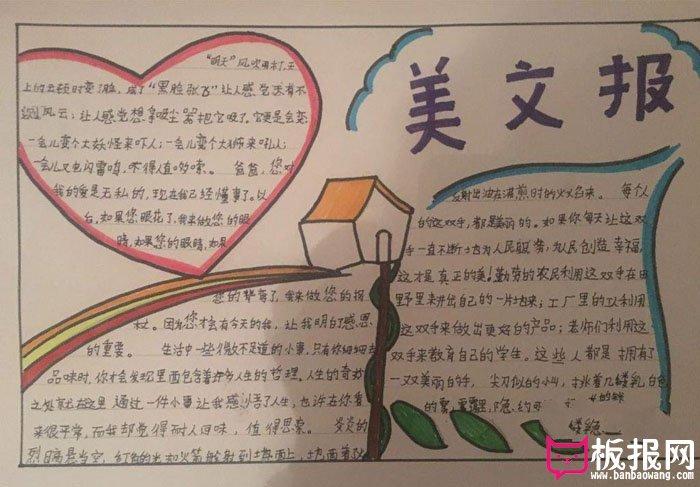 美文报
"明天"风吹雨打,天
上的云顿时变了脸,成了"黑脸张飞"让人感觉天有不
测风云;让人感觉想拿吸尘器把它吸了。它更是会变
一会儿变个大妖怪来吓人;一会儿变个大狮来吼人;
一会儿又电闪雷鸣,不得人直哆嗦。 爸爸,您对
我的爱是无私的,现在我已经懂事了。以
台,如果您眼花了,我来做您的眼
睛,如果您的眼睛,如果
您的背弯了,我来做您的拐
杖。因为您才会有今天的我,让我明白了感恩
的重要。 生活中一些微不足道的小事,只有你细细去
品味时,你才会发现里面包含着许多人生的哲理。人生的奇妙
之处就在这里 通过一件小事让我感悟了人生,也许在你看
来很平常,而我却觉得耐人回味,值得思索。 炎炎的
烈日高悬当空,红色的光如火箭般射到地面上,地面着
反射出油在沸煎时的火火名来。 每个人
的这双手,都是美丽的。如果你每天让这双
手一直不断地去为人民服务,为民创造幸福,
这才是真正的美!勤劳的农民利用这双手在田
野里耕出自己的一片地来;工厂里的工人利用
这双手来做出更好的产品;老师们利用这
双手来教育自己的学生。这些人都是拥有了
一双美丽的手, 尖刀似的小山,挑着几缕乳白色
的雾,雾霭 隐约
缕隐
板报网
www.banbaowang.com